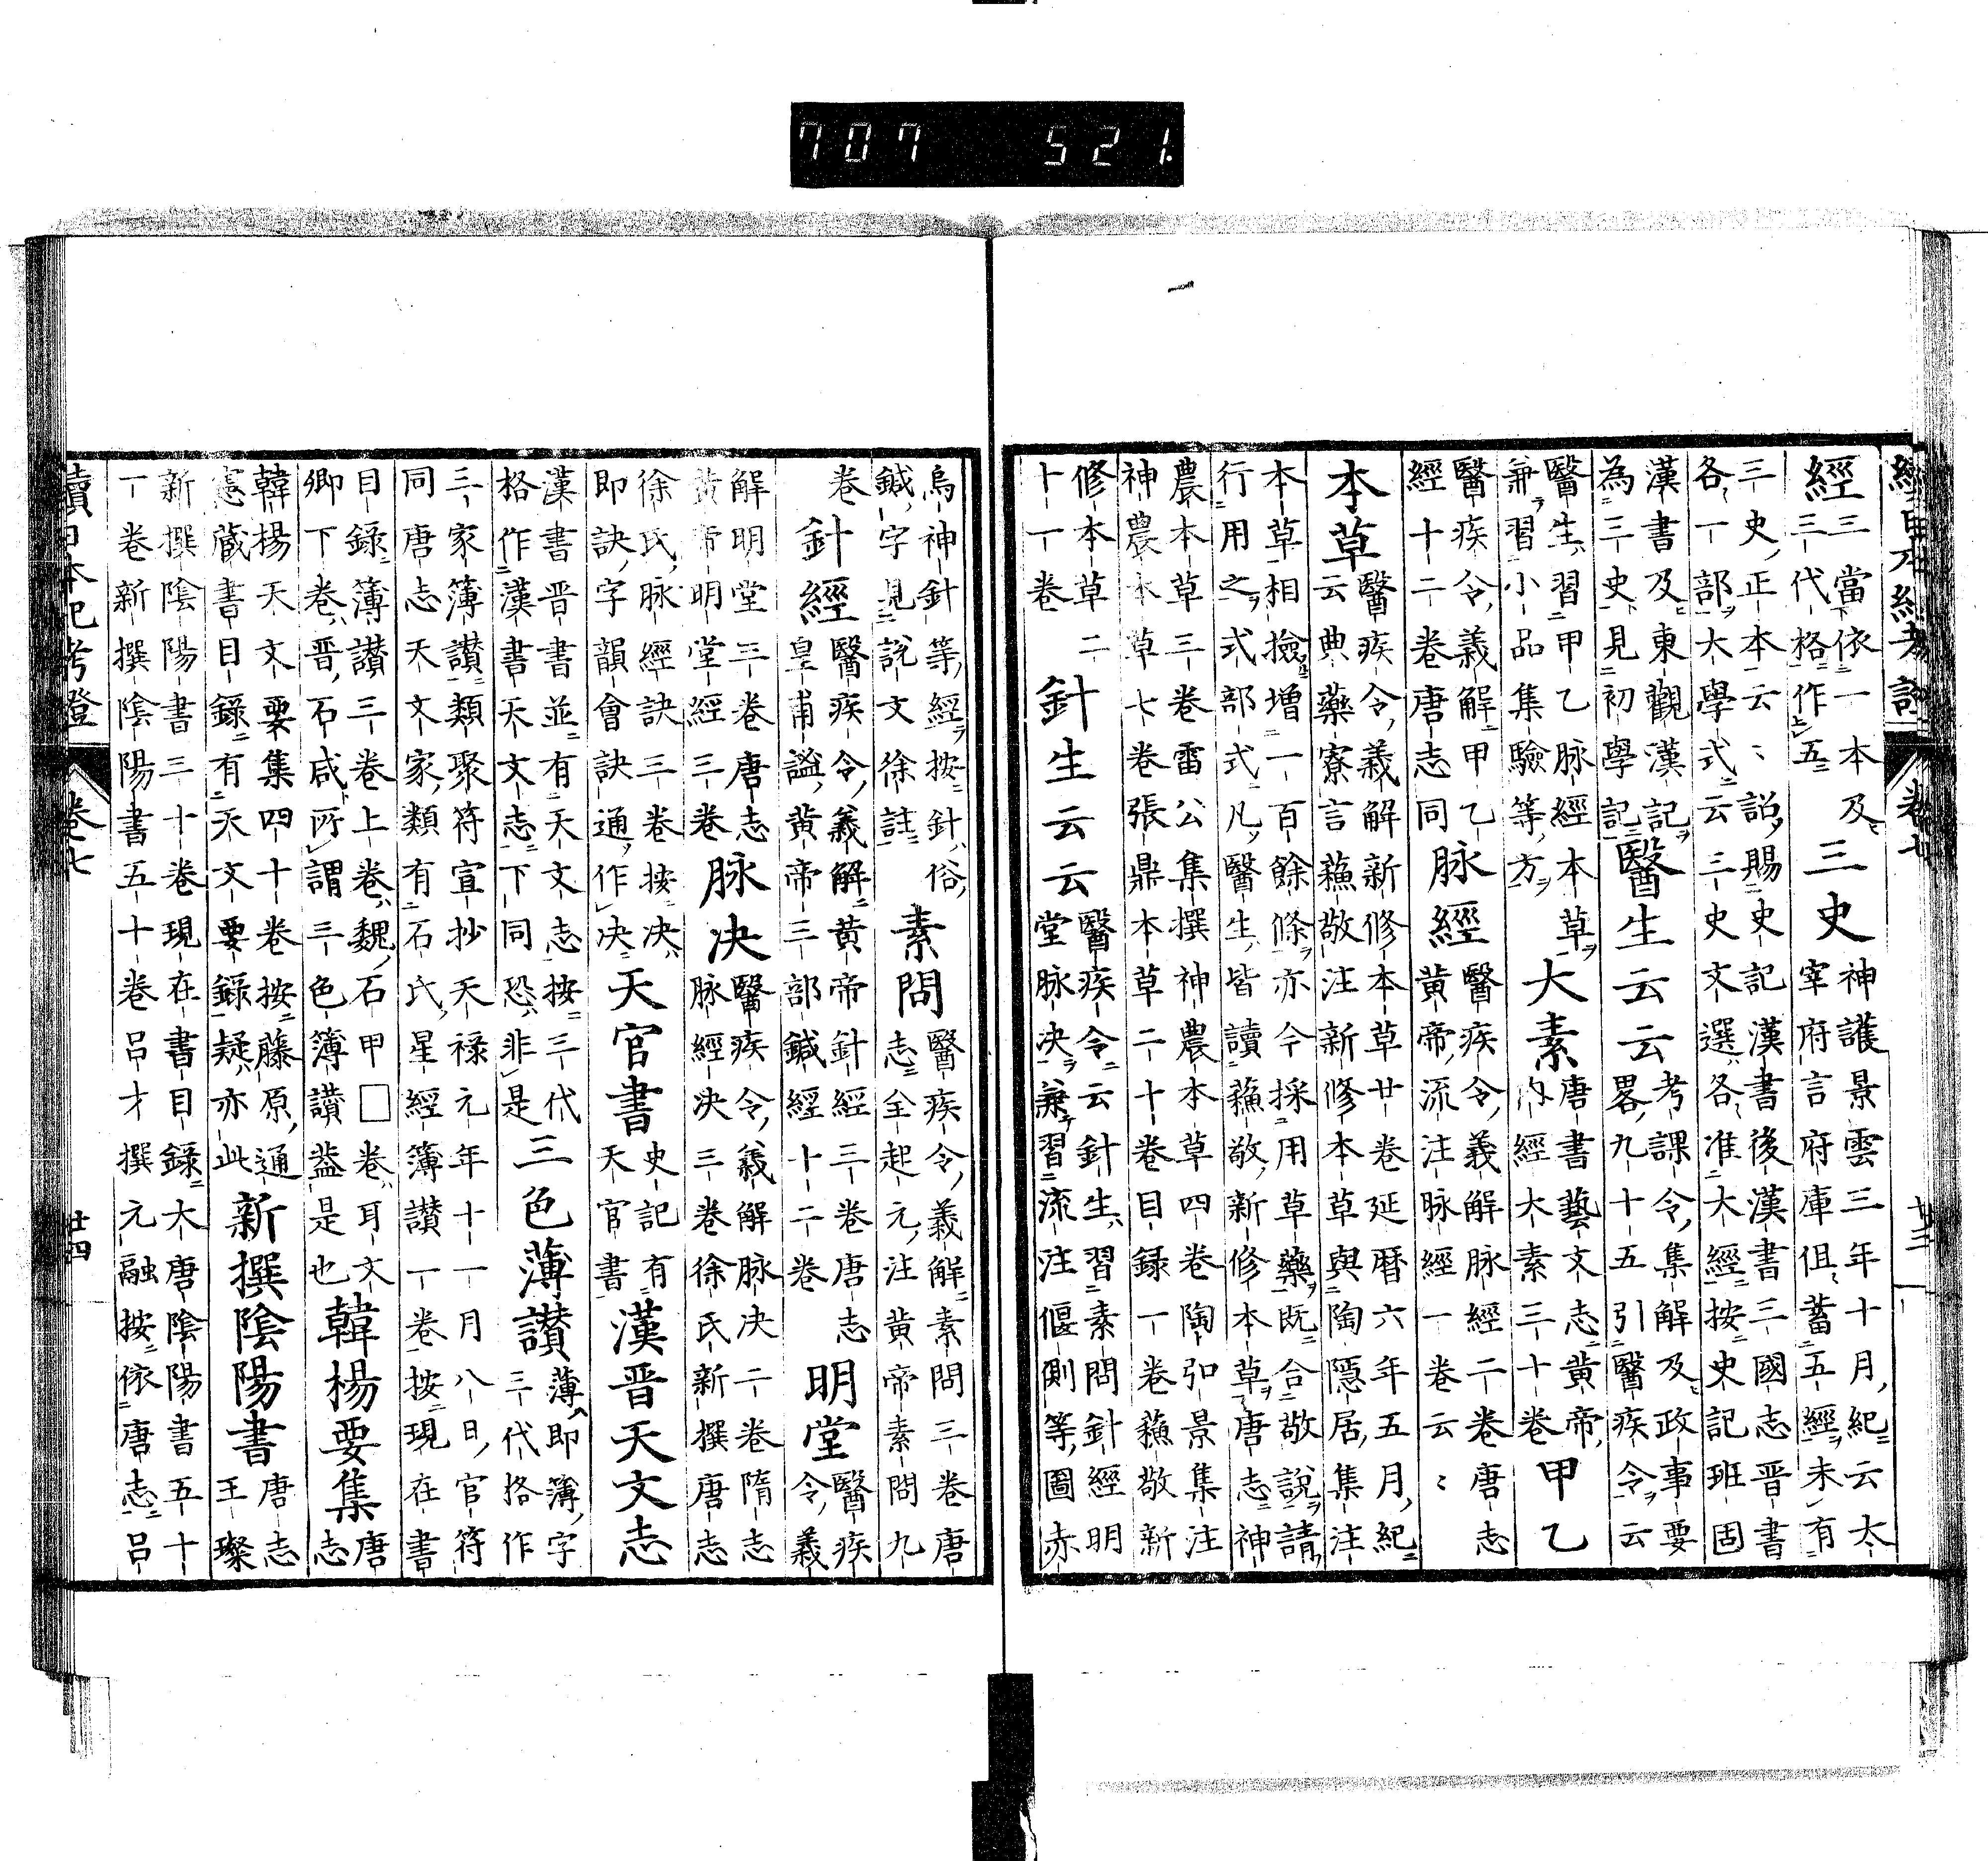 經日本紀考證 卷七 廿三
經
三當依一本及
三代格作五
三史
神護景雲三年十月紀云太
宰府言府庫但蓄五經未有
三史正本云〻詔賜史記漢書後漢書三國志晋書
各一部大學式云三史文選各准大經按史記班固
漢書及東觀漢記
為三史見初學記
醫生云云
考課令集解及政事要
畧九十五引醫疾令云
醫生習甲乙脉經本草
兼習小品集驗等方
大素
唐書藝文志黄帝
内經大素三十卷
甲乙
醫疾令義解甲乙
經十二卷唐志同
脉經
醫疾令義解脉經二卷唐志
黄帝流注脉經一卷云〻
本草
醫疾令義解新修本草廿卷延暦六年五月紀
云典藥寮言蘓敬注新修本草與陶隱居集注
本草相撿增一百餘條亦今採用草藥既合敬說請
行用之式部式凡醫生皆讀蘓敬新修本草唐志神
農本草三卷雷公集撰神農本草四卷陶弘景集注
神農本草七卷張鼎本草二十卷目録一卷蘓敬新
修本草二
十一卷
針生云云
醫疾令云針生習素問針經明
堂脉决兼習流注偃側等圖赤
烏神針等經按針俗
鍼字見說文徐註
素問
醫疾令義解素問三卷唐
志全起元注黄帝素問九
卷
針經
醫疾令義解黄帝針經三卷唐志
皇甫謐黄帝三部鍼經十二卷
明堂
醫疾
令義
解明堂三卷唐志
黄帝明堂經三卷
脉决
醫疾令義解脉决二卷隋志
脉經决三卷徐氏新撰唐志
徐氏脉經訣三卷按决
即訣字韻會訣通作决
天官書
史記有
天官書
漢晋天文志
漢書晋書並有天文志按三代
格作漢書天文志下同恐非是
三色薄讃
薄即簿字
三代格作
三家簿讃類聚符宣抄天禄元年十一月八日官符
同唐志天文家類有石氏星經簿讃一卷按現在書
目録簿讃三卷上卷魏石甲□卷耳文
卿下卷晋石咸所謂三色簿讃盖是也
韓楊要集
唐
志
韓楊天文要集四十卷按藤原通
憲藏書目録有天文要録疑亦此
新撰陰陽書
唐志
王璨
新撰陰陽書三十卷現在書目録大唐陰陽書五十
一卷新撰陰陽書五十卷呂才撰元融按依唐志呂
續日本紀考證 卷七 廿四
707 521.